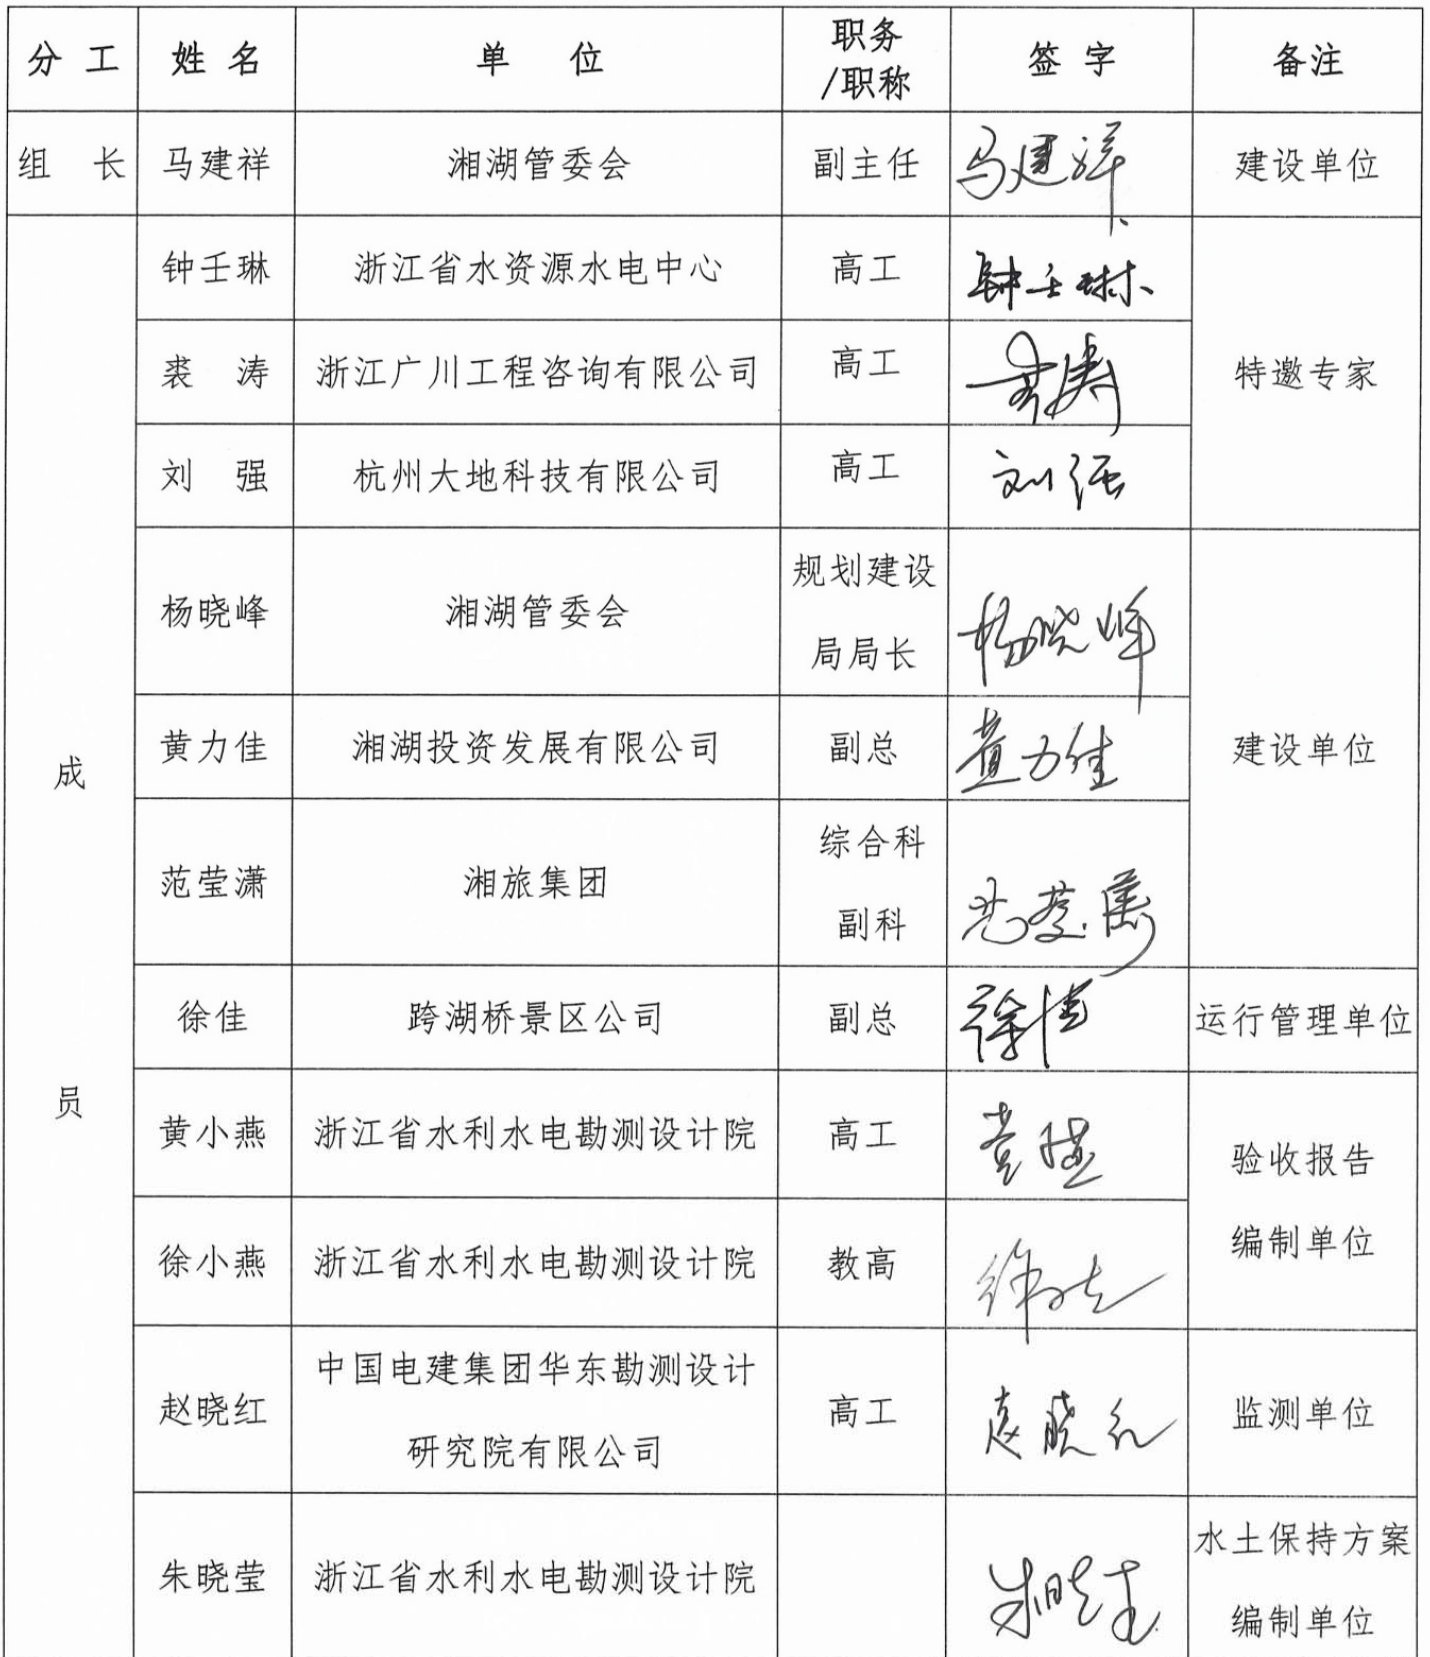 分工 姓名 单位 职务/职称 签字 备注
组长 马建祥 湘湖管委会 副主任 马建祥 建设单位
成员
钟壬琳 浙江省水资源水电中心 高工 钟壬琳 特邀专家
裘涛 浙江广川工程咨询有限公司 高工 裘涛
刘强 杭州大地科技有限公司 高工 刘强
杨晓峰 湘湖管委会 规划建设局局长 杨晓峰 建设单位
黄力佳 湘湖投资发展有限公司 副总 黄力佳
范莹潇 湘旅集团 综合科副科 范莹潇
徐佳 跨湖桥景区公司 副总 徐佳 运行管理单位
黄小燕 浙江省水利水电勘测设计院 高工 黄小燕 验收报告编制单位
徐小燕 浙江省水利水电勘测设计院 教高
赵晓红 中国电建集团华东勘测设计研究院有限公司 高工 赵晓红 监测单位
朱晓莹 浙江省水利水电勘测设计院 朱晓莹 水土保持方案编制单位